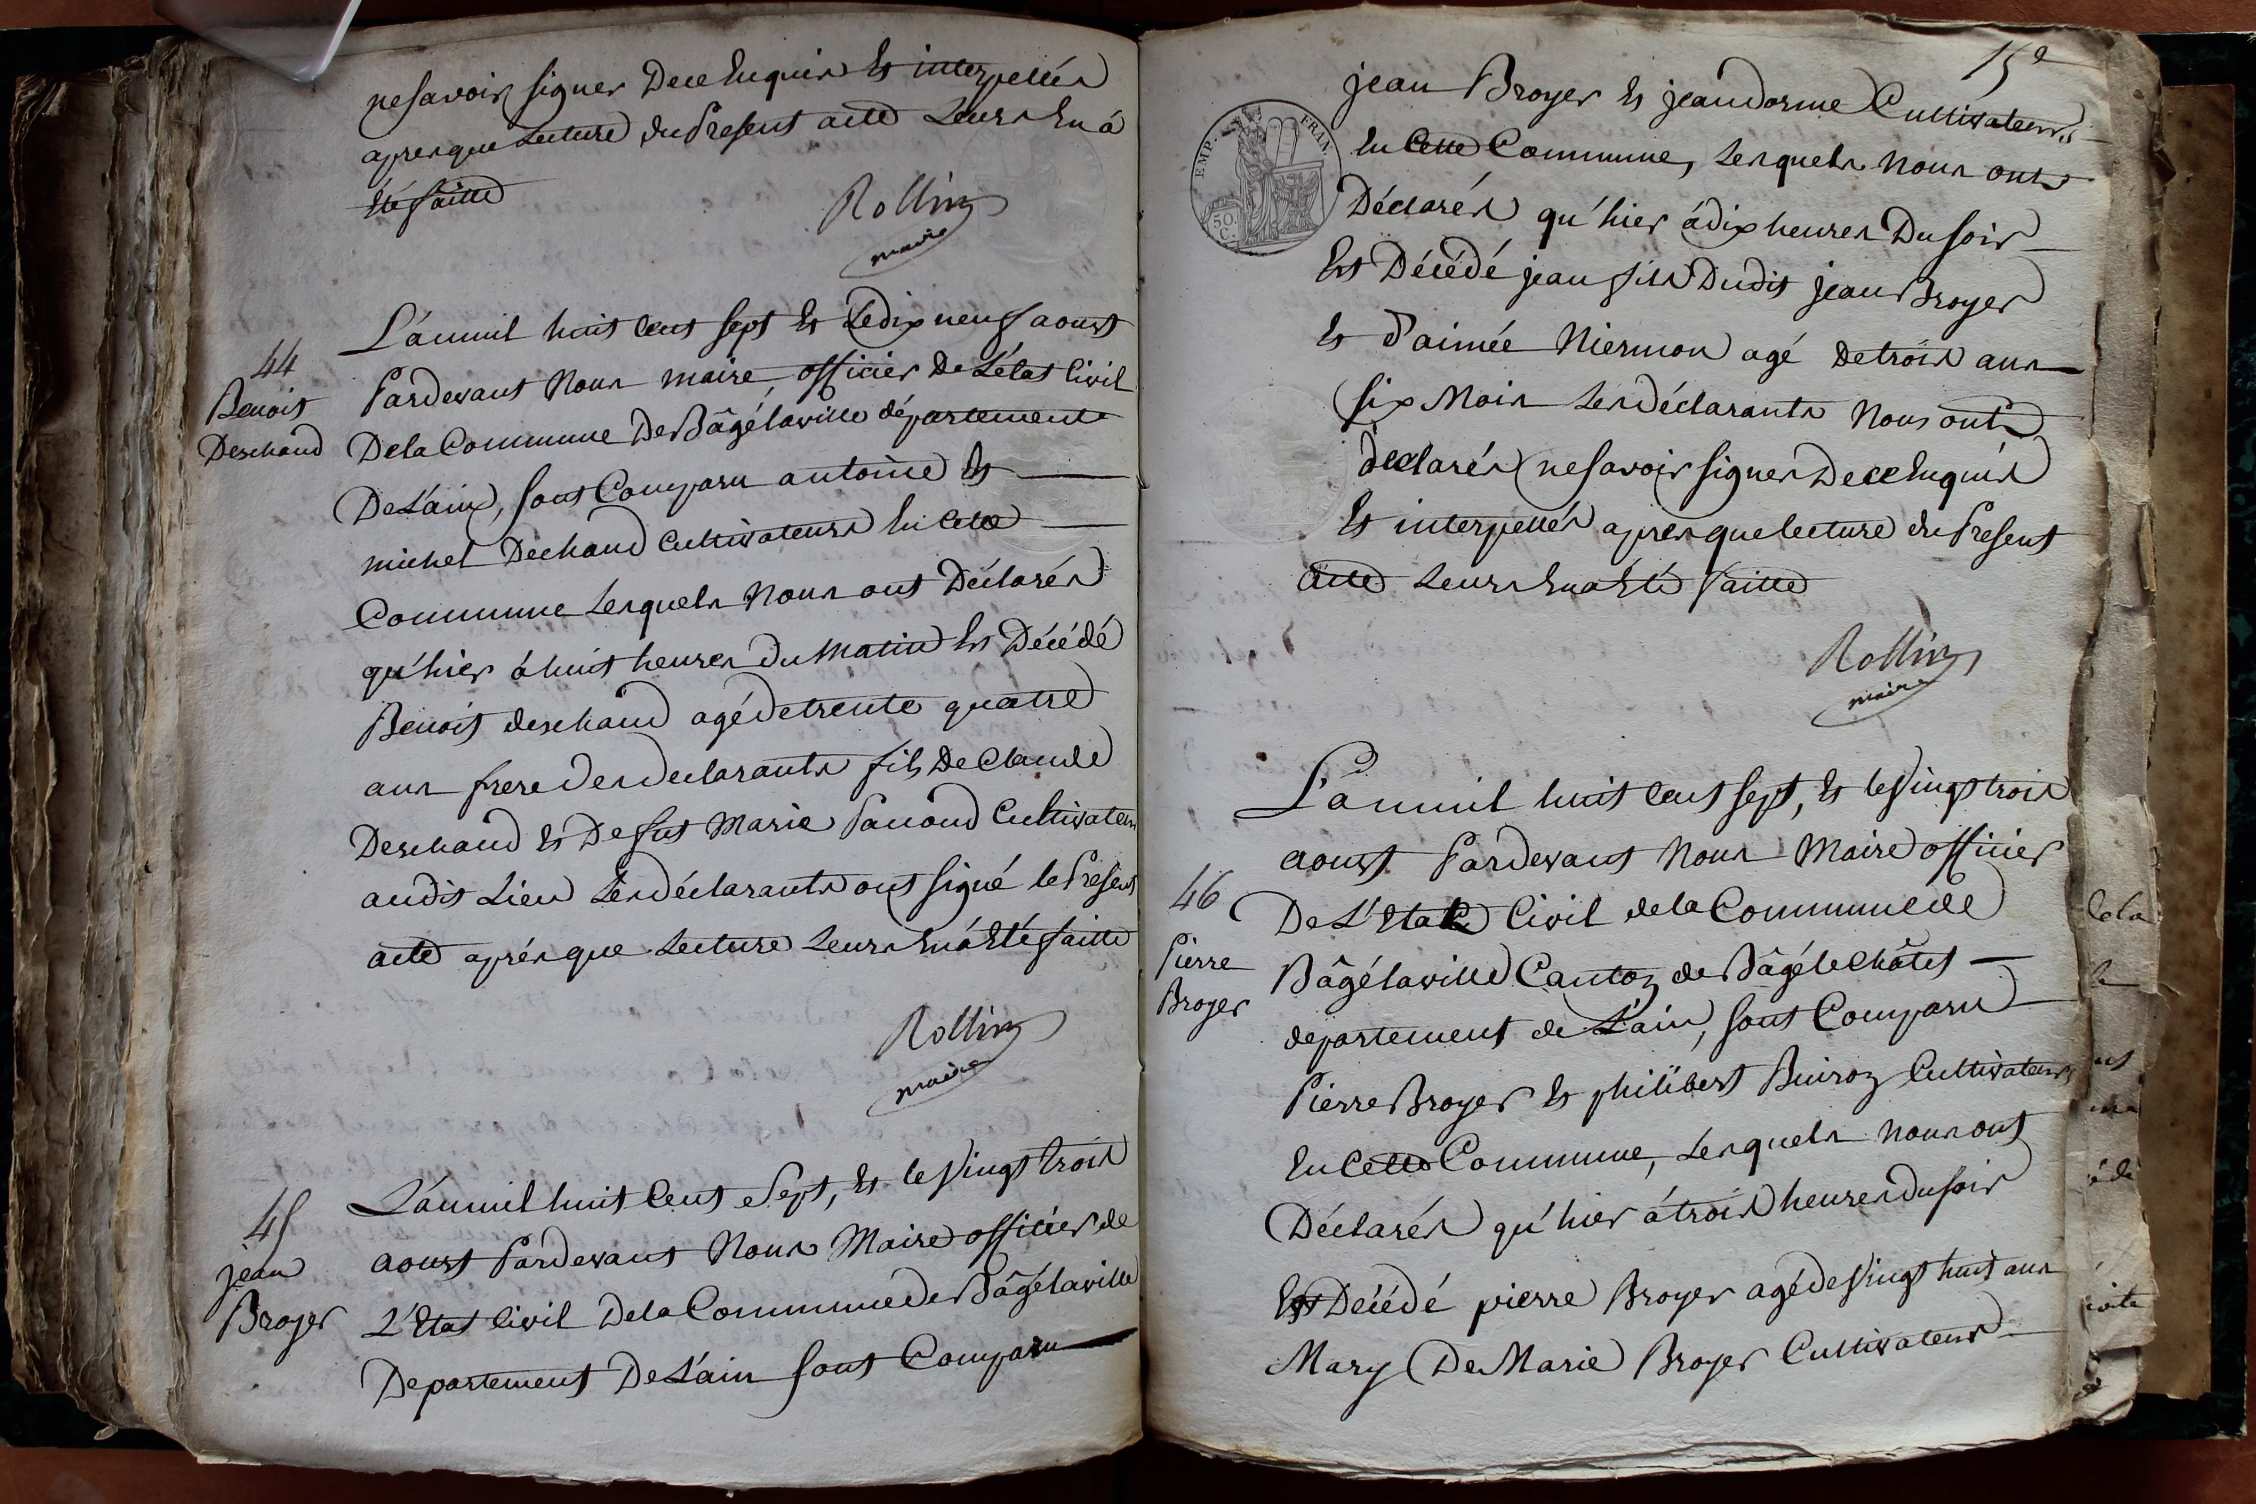 ne savoir signer De ce Enquis Et interpellés
apres que Lecture du Present acte Leurs En á
Eté faitte
Rollin
maire
44
Benoit
Deschaud
L'an mil huit cent sept Et Le dix neuf aoust
Pardevant Nous maire, officier De L'état Civil
De la Commune De Bâgé laville département
De L'ain, sont Comparu antoine Et
michel Dechaud Cultivateurs En Cette
Commune Lesquels Nous ont Déclarés
qu'hier á huit heures du Matin Est Décédé
Benoit deschaud agé de trente quatre
ans frere des declarants fils De Claude
Deschaud Et De fut Marie Pauoud Cultivateur
audit Lieu Les déclarants ont signé le Present
acte aprés que Lecture Leurs En á Eté faitte
Rollin
maire
45
jean
Broyer
L'an mil huit Cent Sept, Et le Vingt trois
aoust Pardevant Nous Maire officier de
L'Etat Civil De la Commune de Bâgé laville
Departement De L'ain sont Comparu
15e
EMP. FRAN.
50.
C.
jean Broyer Et jean dorme Cultivateurs
En Cette Commune, Lesquels Nous ont
Déclarés qu'hier á dix heures Du soir
Est Décédé jean fils Dudit jean Broyer
Et d'aimée Niermon agé de trois ans
six Mois Les déclarants Nous ont
declarés ne savoir signer De ce Enquis
Et interpellés apres que lecture du Present
acte Leurs En a Eté faitte
Rollin
maire
46
Pierre
Broyer
L'an mil huit Cent sept, Et le Vingt trois
aoust Pardevant Nous Maire officier
De L'Etat Civil de la Commune de
Bâgé laville Canton de Bâgé le Châtel
departement de L'ain, sont Comparu
Pierre Broyer Et philibert Buiron Cultivateurs
En Cette Commune, Lesquels Nous ont
Déclarés qu'hier á trois heures du soir
Est Décédé pierre Broyer agé de Vingt huit ans
Mary De Marie Broyer Cultivateur